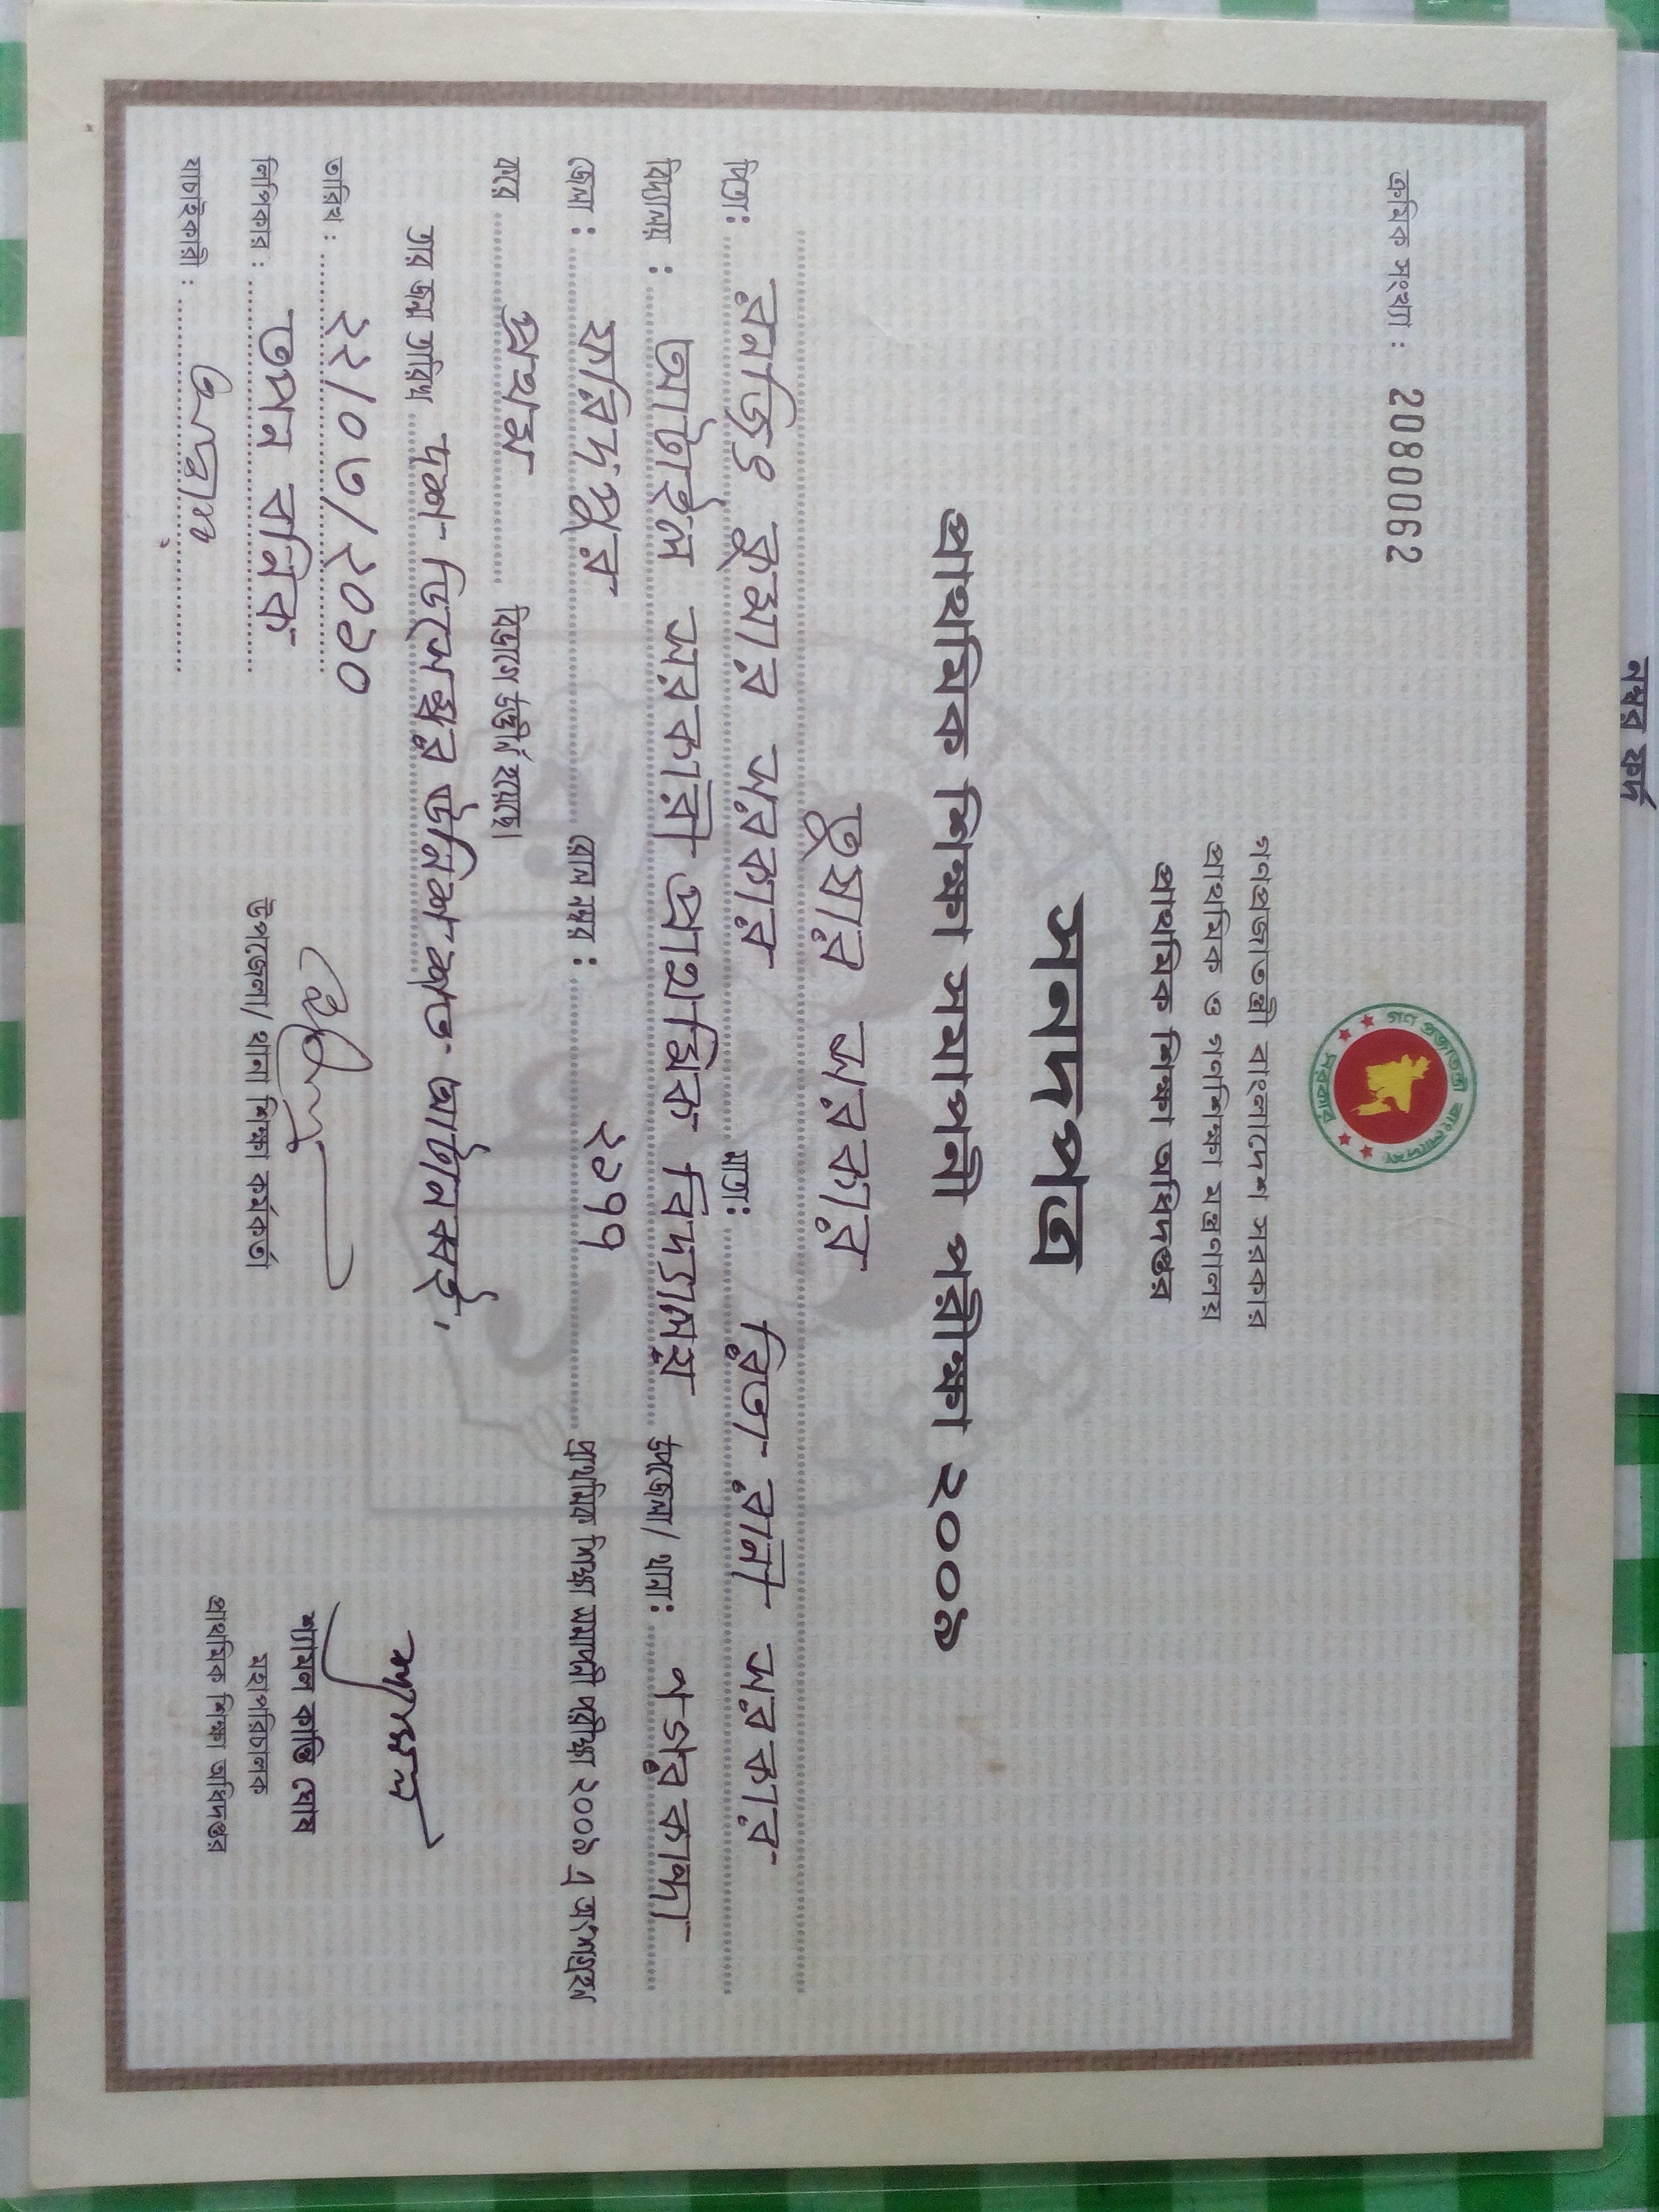 নম্বর ফর্দ
ক্রমিক সংখ্যা : 2080062
গণ প্রজাতন্ত্রী বাংলাদেশ
সরকার
গণপ্রজাতন্ত্রী বাংলাদেশ সরকার
প্রাথমিক ও গণশিক্ষা মন্ত্রণালয়
প্রাথমিক শিক্ষা অধিদপ্তর
সনদপত্র
প্রাথমিক শিক্ষা সমাপনী পরীক্ষা ২০০৯
তুষার সরকার
পিতা: রনজিৎ কুমার সরকার মাতা: রিতা রানী সরকার
বিদ্যালয় : আটাইল সরকারী প্রাথমিক বিদ্যালয় উপজেলা/ থানা: নগরকান্দা
জেলা : ফরিদপুর রোল নম্বর : ২১৭৭ প্রাথমিক শিক্ষা সমাপনী পরীক্ষা ২০০৯ এ অংশগ্রহন
করে প্রথম বিভাগে উত্তীর্ন হয়েছে।
তার জন্ম তারিখ দশ ডিসেম্বর উনিশ শত আটানব্বই।
শ্যামল
তারিখ : ২২/০৩/২০১০
শ্যামল কান্তি ঘোষ
লিপিকার : তপন বনিক
উপজেলা/ থানা শিক্ষা কর্মকর্তা
মহাপরিচালক
প্রাথমিক শিক্ষা অধিদপ্তর
যাচাইকারী :